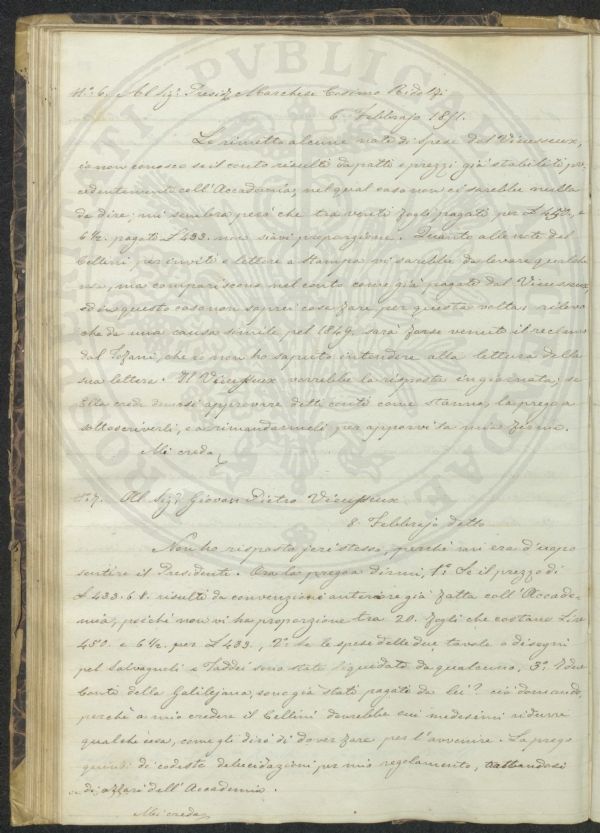 N.° 6. Al Sig.r Presid.e Marchese Cosimo Ridolfi.
6 Febbrajo 1851.
Le rimetto alcune note di spese del Vieusseux,
io non conosco se il conto risulti da patti e prezzi già stabiliti pre-
cedentemente coll'Accademia, nel qual caso non ci sarebbe nulla
da dire; mi sembra però che tra venti fogli pagati per £ 450, e
6 1/2 pagati £ 433. non siavi proporzione. Quanto alle note del
Cellini, per inviti e lettere a stampa vi sarebbe da levare qualche
cosa, ma compariscono nel conto come già pagate dal Vieusseux,
ed in questo caso non saprei cosa fare per questa volta; rilevo
che da una causa simile pel 1849. sarà forse venuto il reclamo
dal Tofani, che io non ho saputo intendere alla lettura della
sua lettera. Il Vieusseux vorrebbe la risposta in giornata; se
Ella crede di così approvare detti conti come stanno, la prego a
sottoscriverli, e a rimandarmeli per apporvi la mia firma.
Mi creda
N. 7. Al Sig.r Giovan Pietro Vieusseux
8 Febbrajo detto
Non ho risposta jeri stesso, perchè mi era d'uopo
sentire il Presidente. Ora la prego a dirmi, 1.° Se il prezzo di
£ 433.6.8. risulti da convenzione anteriore già fatta coll'Accade-
mia, poichè non vi ha proporzione tra 20. fogli che costano Lire
450. e 6 1/2. per £ 433., 2.° se le spese delle due tavole o disegni
pel Salvagnoli e Taddei sono state liquidate da qualcuno, 3.° I due
Conti della Galilejana, sono già stati pagati da lei? ciò domando,
perchè a mio credere il Cellini dovrebbe sui medesimi ridurre
qualche cosa, come gli dirò di dover fare per l'avvenire. La prego
quindi di codeste delucidazioni per mio regolamento, trattandosi
di affari dell'Accademia.
Mi creda